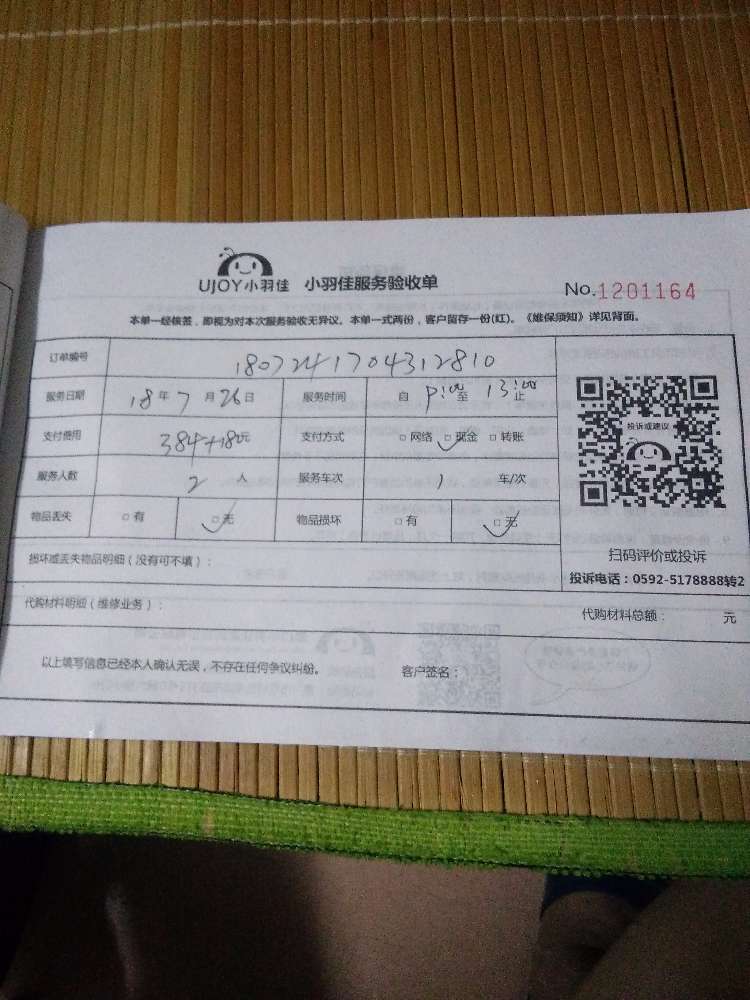 UJOY小羽佳 小羽佳服务验收单 No.1201164
本单一经核签，即视为对本次服务验收无异议。本单一式两份，客户留存一份(红)。《维保须知》详见背面。
订单编号 1807241704312810
服务日期 18年7月26日 服务时间 自 9:00至 13:00止
支付费用 384+180元 支付方式 □网络 □现金 □转账
服务人数 2 人 服务车次 1 车/次
物品丢失 □有 □无 物品损坏 □有 □无
投诉或建议
扫码评价或投诉
投诉电话：0592-5178888转2
损坏或丢失物品明细（没有可不填）：
代购材料明细（维修业务）： 代购材料总额： 元
以上填写信息已经本人确认无误，不存在任何争议纠纷。 客户签名：